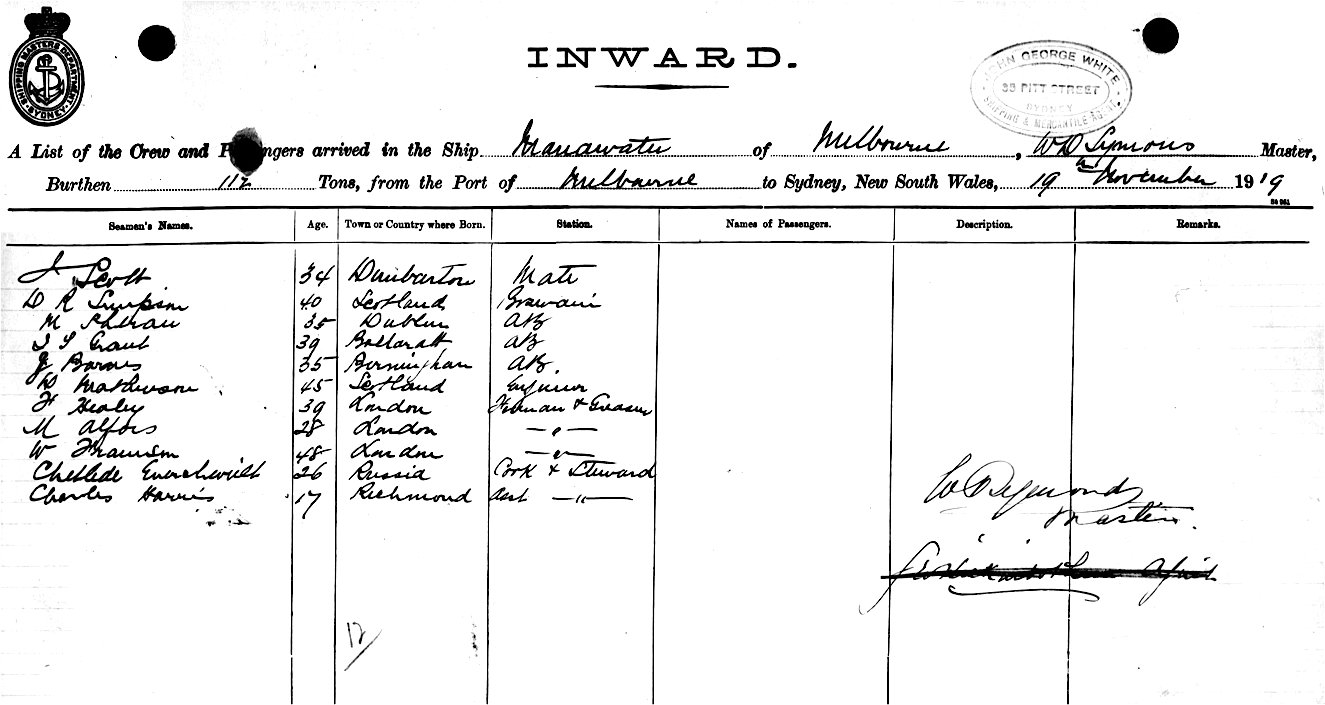 SHIPPING MASTERS DEPARTMENT SYDNEY
INWARD.
JOHN GEORGE WHITE
35 PITT STREET
SYDNEY
SHIPPING & MERCANTILE AGENT
A List of the Crew and P ngers arrived in the Ship Manawatu of Melbourne, W D Symons Master,
Burthen 112 Tons, from the Port of Melbourne to Sydney, New South Wales, 19th November 1919
Seamen's Names. Age. Town or Country where Born. Station. Names of Passengers. Description. Remarks.
J Scott 34 Dumbarton Mate
D R Simpson 40 Scotland
M 35 Dublin AB
J S Grant 39 Ballaratt AB
J Barnes 35 Birmingham AB.
D Mathewson 45 Scotland Engineer
F Healey 39 London Fireman & Greaser
M 28 London — " —
W 48 London — " —
26 Russia Cook & Steward
Charles Harris 17 Richmond Asst — " —
W D Symonds
Master.
12